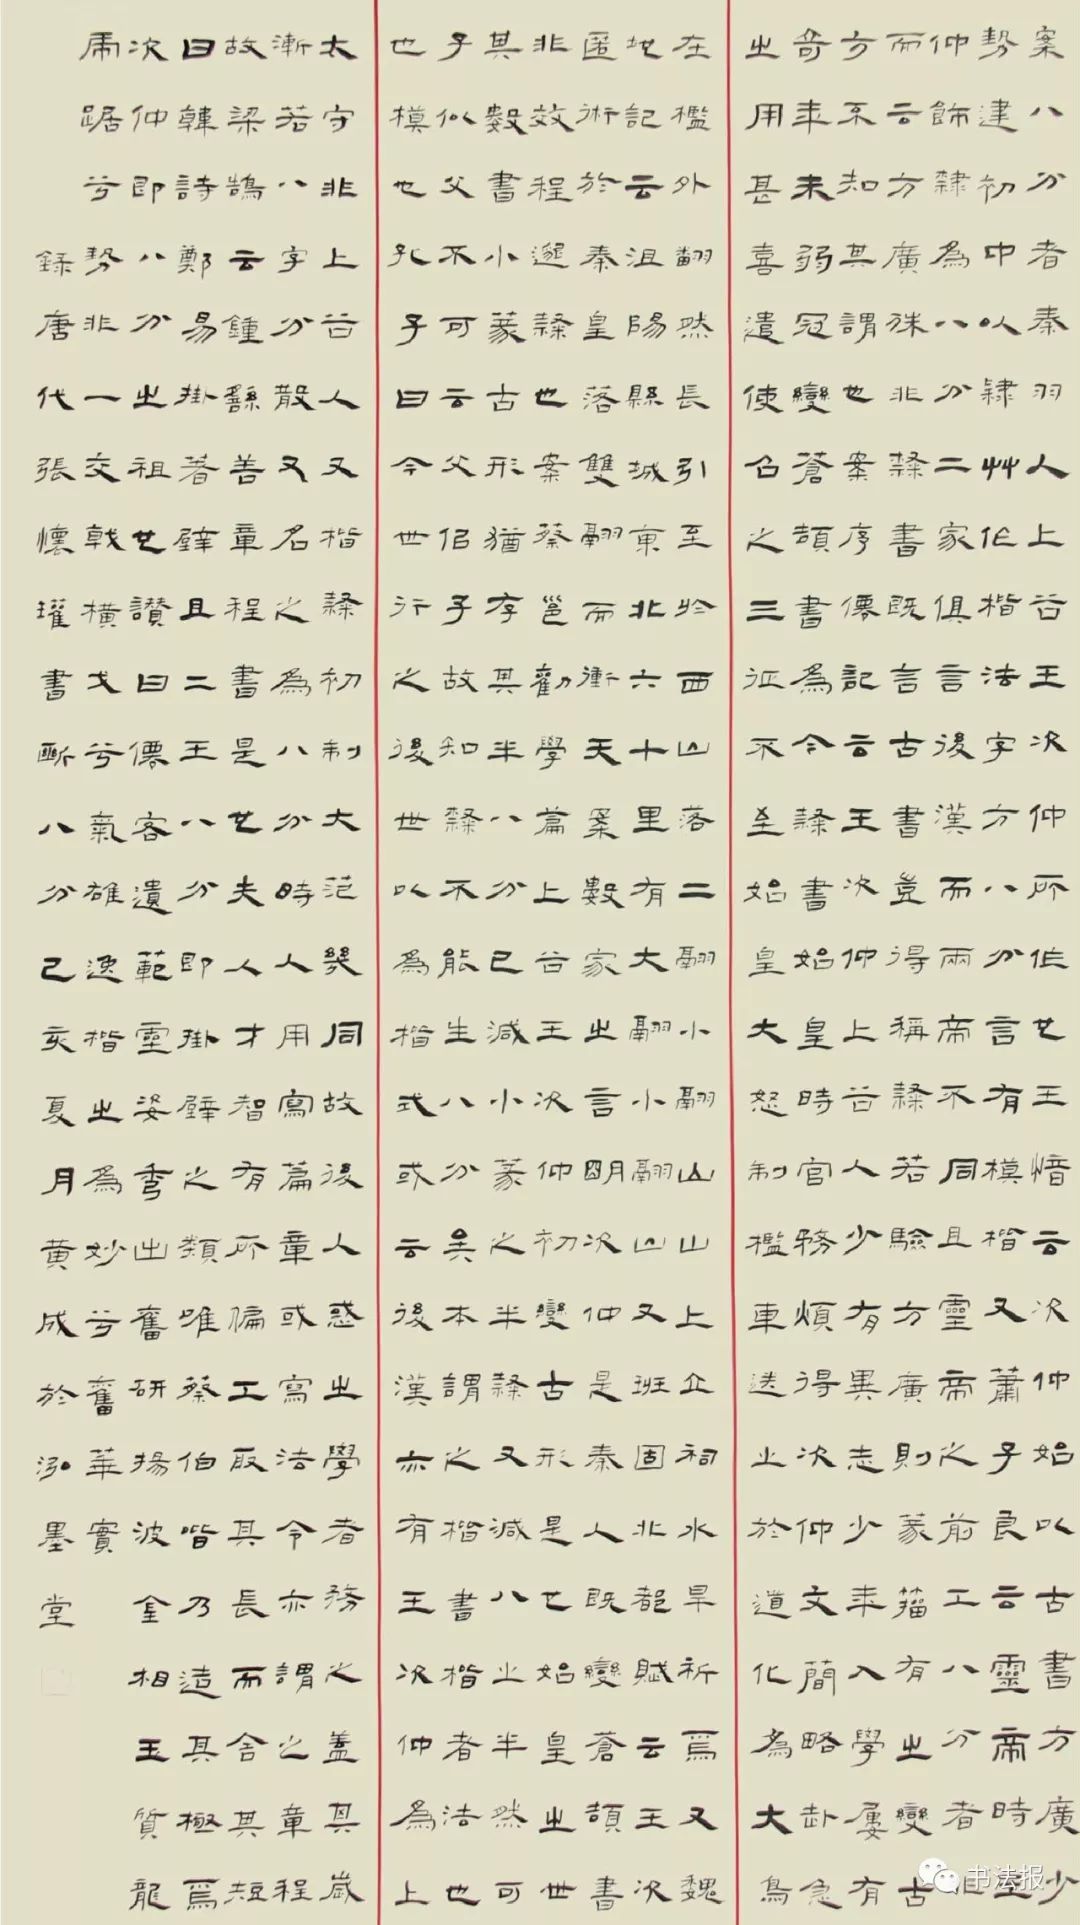 案八分者秦羽人上谷王次仲所作也王愔云次仲始以古書方廣少
勢建初中以隸艸作楷法字方八分言有模楷又蕭子良云靈帝時王
仲飾隸為八分二家俱言後漢而兩帝不同且靈帝之前工八分者非
而云方廣殊非隸書既言古書豈得稱隸若驗方廣則篆籀有之變古
方不知其謂也案序僊記云王次仲上谷人少有異志少年入學屢有
奇年未弱冠變蒼頡書為今隸書始皇時官務煩得次仲文簡略赴急
之用甚喜遣使召之三征不至始皇大怒制檻車送之於道化為大鳥
在檻外翻然長引至於西山落二翮小翮山山上立祠水旱祈焉又魏
地記云沮陽縣城東北六十里有大翮小翮山又班固北都賦云王次
匿術於秦皇落雙翮而衝天案數家之言明次仲是秦人既變蒼頡書
非效程邈隸也案蔡邕勸學篇上谷王次仲初變古形是也始皇之世
其數書小篆古形猶存其半八分已減小篆之半隸又減八之半然可
子似父不可云父佀子故知隸不能生八分吳本謂之楷書楷者法也
也模也孔子曰今世行之後世以為楷式或云後漢亦有王次仲為上
太守非上谷人又楷隸初制大范幾同故後人惑之學者務之蓋其歲
漸若八字分散又名之為八分時人用寫篇章或寫法令亦謂之章程
故梁鵠云鍾繇善章程書是也夫人才智有所偏工取其長而舍其短
曰韓詩鄭易掛著壁且二王八分即掛壁之類唯蔡伯喈乃造其極焉
次仲即八分之祖也讚曰僊客遺範靈姿秀出奮研揚波金相玉質龍
虎踞兮勢非一交戟橫戈兮氣雄逸楷之為妙兮奮華實
錄唐代張懷瓘書斷八分己亥夏月黃成於泓墨堂
书法报